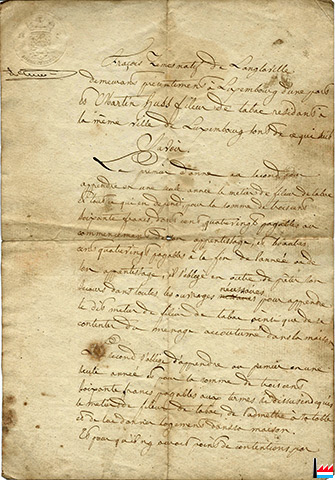 François natif de Langlaville
demeurant presentement à Luxembourg d'une part
et Martin Huss fileur de tabac residant à
la même ville de Luxembourg sont de ce qui suit
Savoir
Le premier donne au second pour
apprendre en une seule année le metier de fileur de tabac
soixante francs dont cent quatre vingt payables au
commencement de apprentissage, et
cent quatre vingt payables à la fin de l'année ou de
son apprentissage, s'oblige en outre de
dans toutes les ouvrages necessaires pour apprendre
le dit metier de fileur de tabac ainsi que de se
contenter du menage accoutumé dans la maison
Le second s'oblige d'apprendre au premier en une
seule année et pour la somme de trois cens
soixante francs payables aux termes ci dessus indiqués
le metier de fileur de tabac, de l'admettre à sa table
et de lui donner logement dans sa maison
Et pour qu'il n'y aura point de contentions par